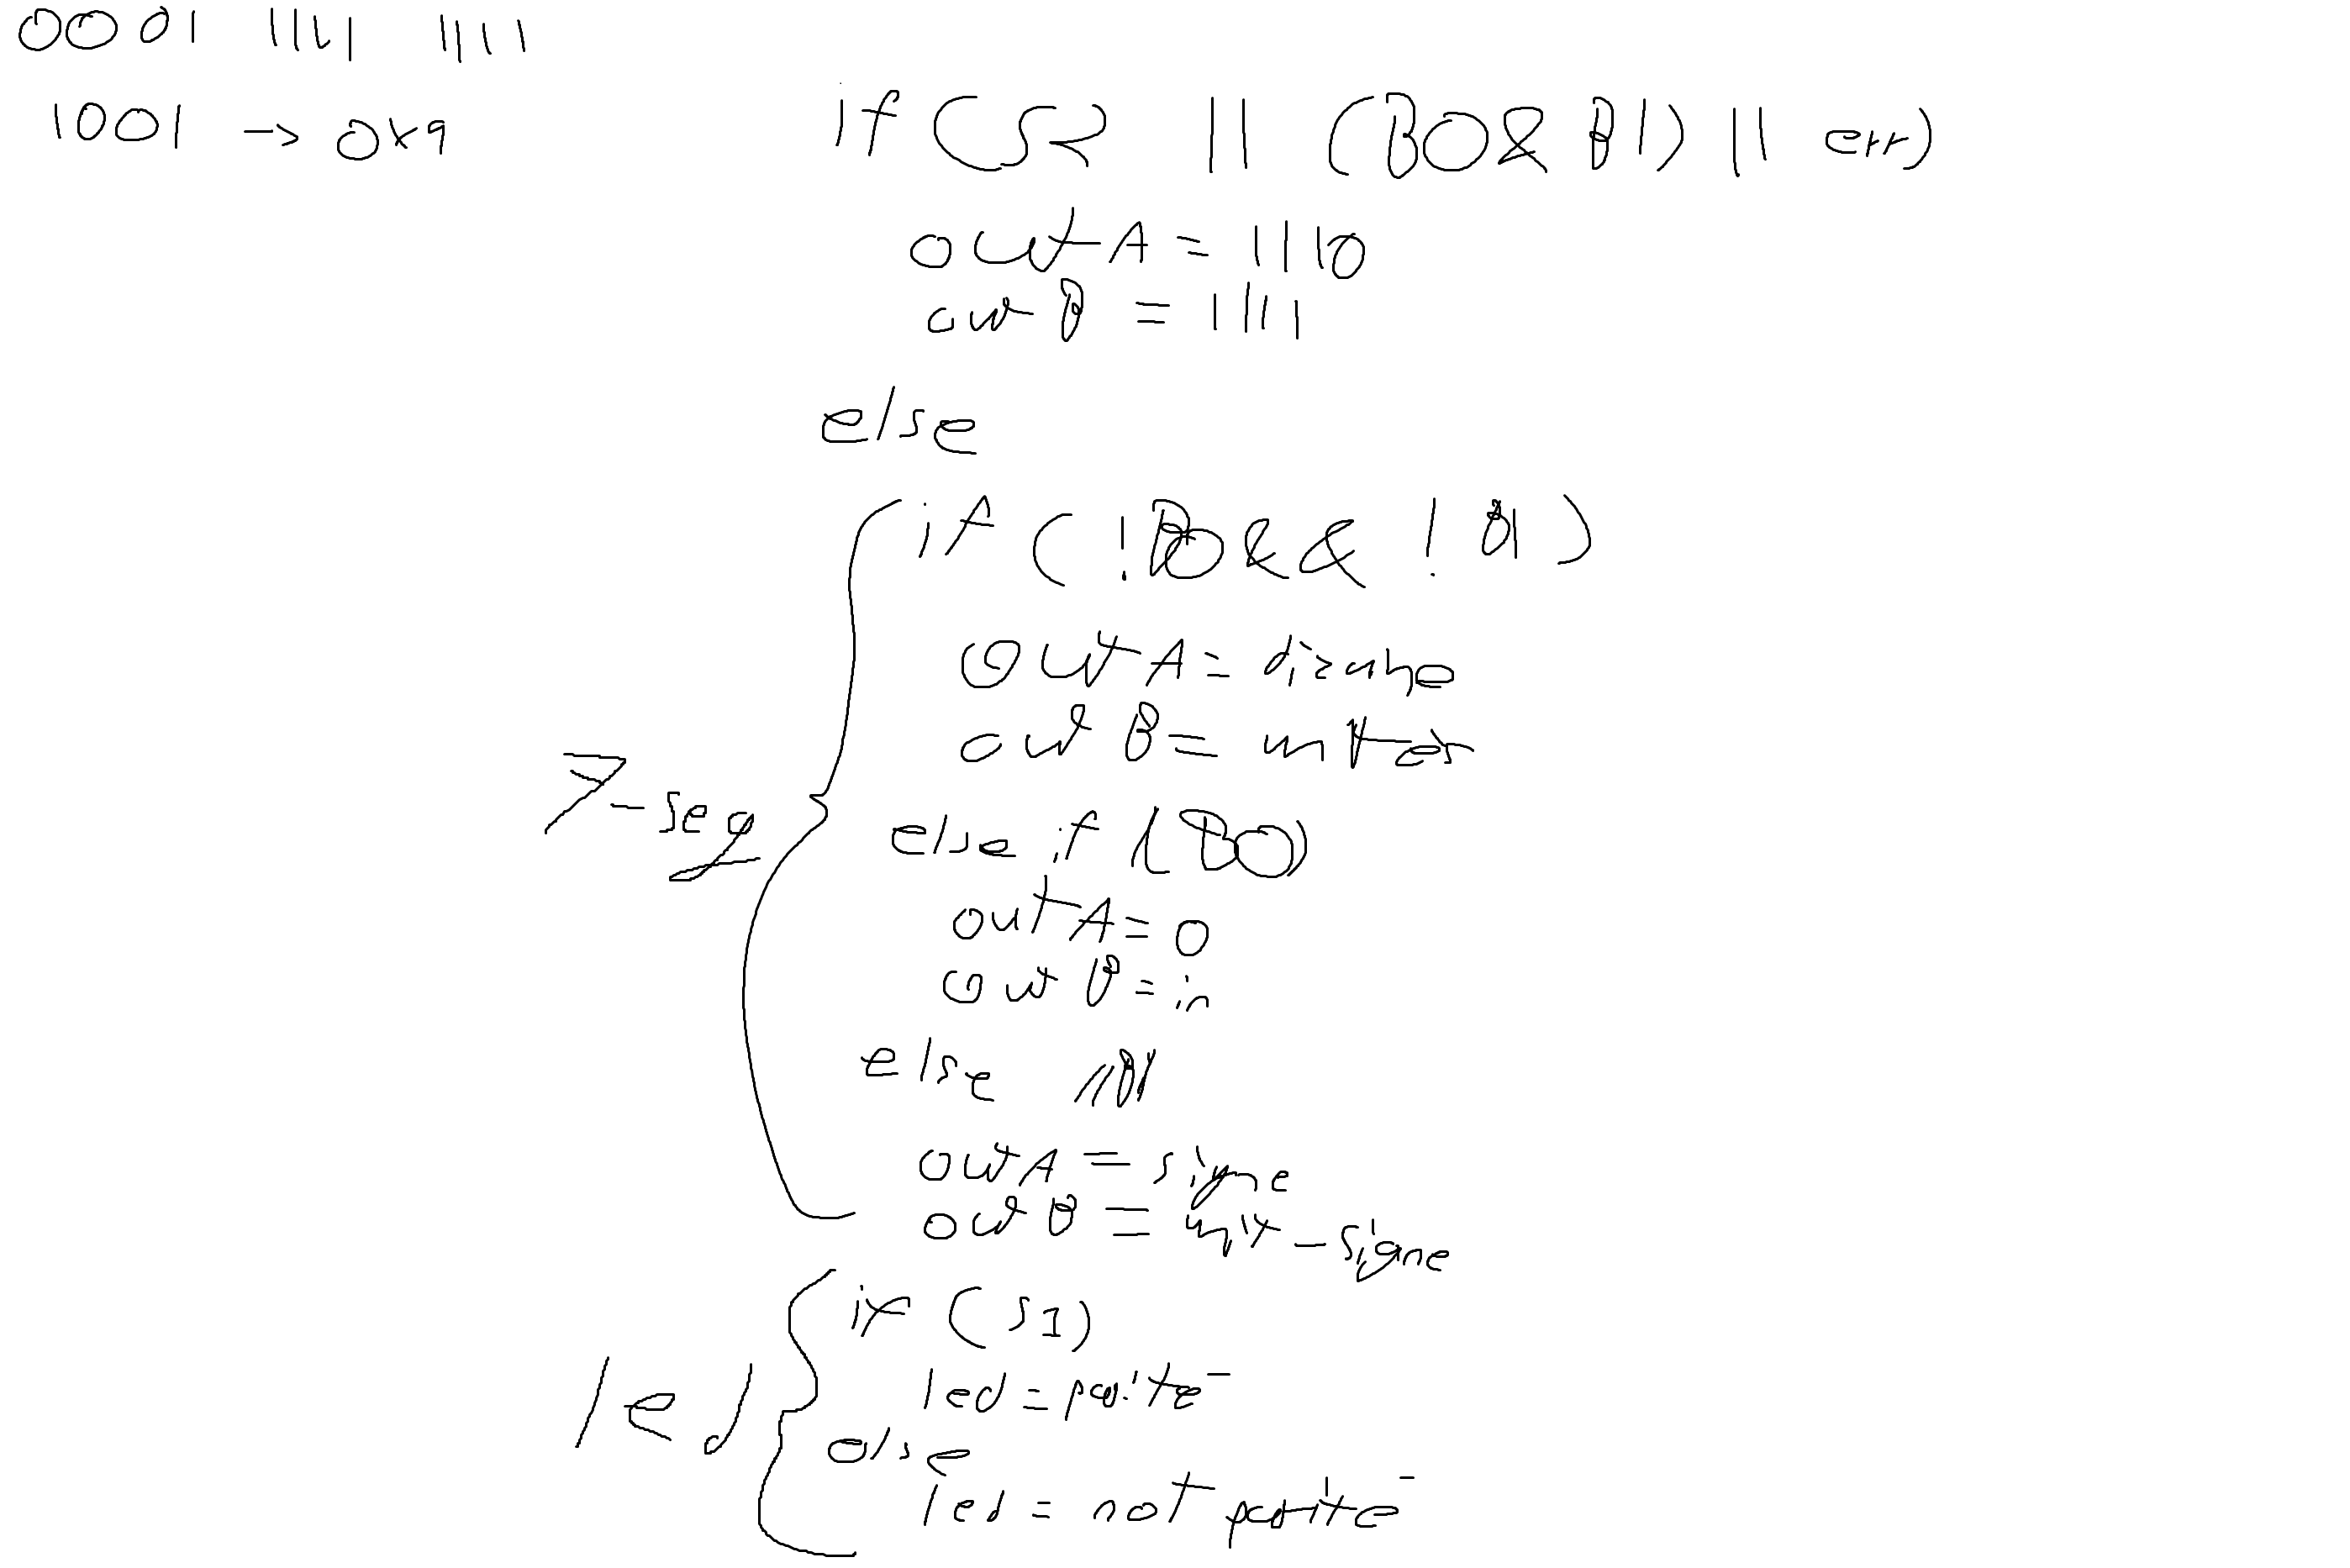 0001 1111 1111
1001 -> 0x9
if (S2 || (B0 & B1) || err)
outA = 1110
outB = 1111
else
if (!B0 && !B1)
outA = dizaine
outB = unites
else if (B0)
outA = 0
outB = in
else //B1
outA = signe
outB = unit-signe
7-seg
if (S1)
led = parité
else
led = not parité
led